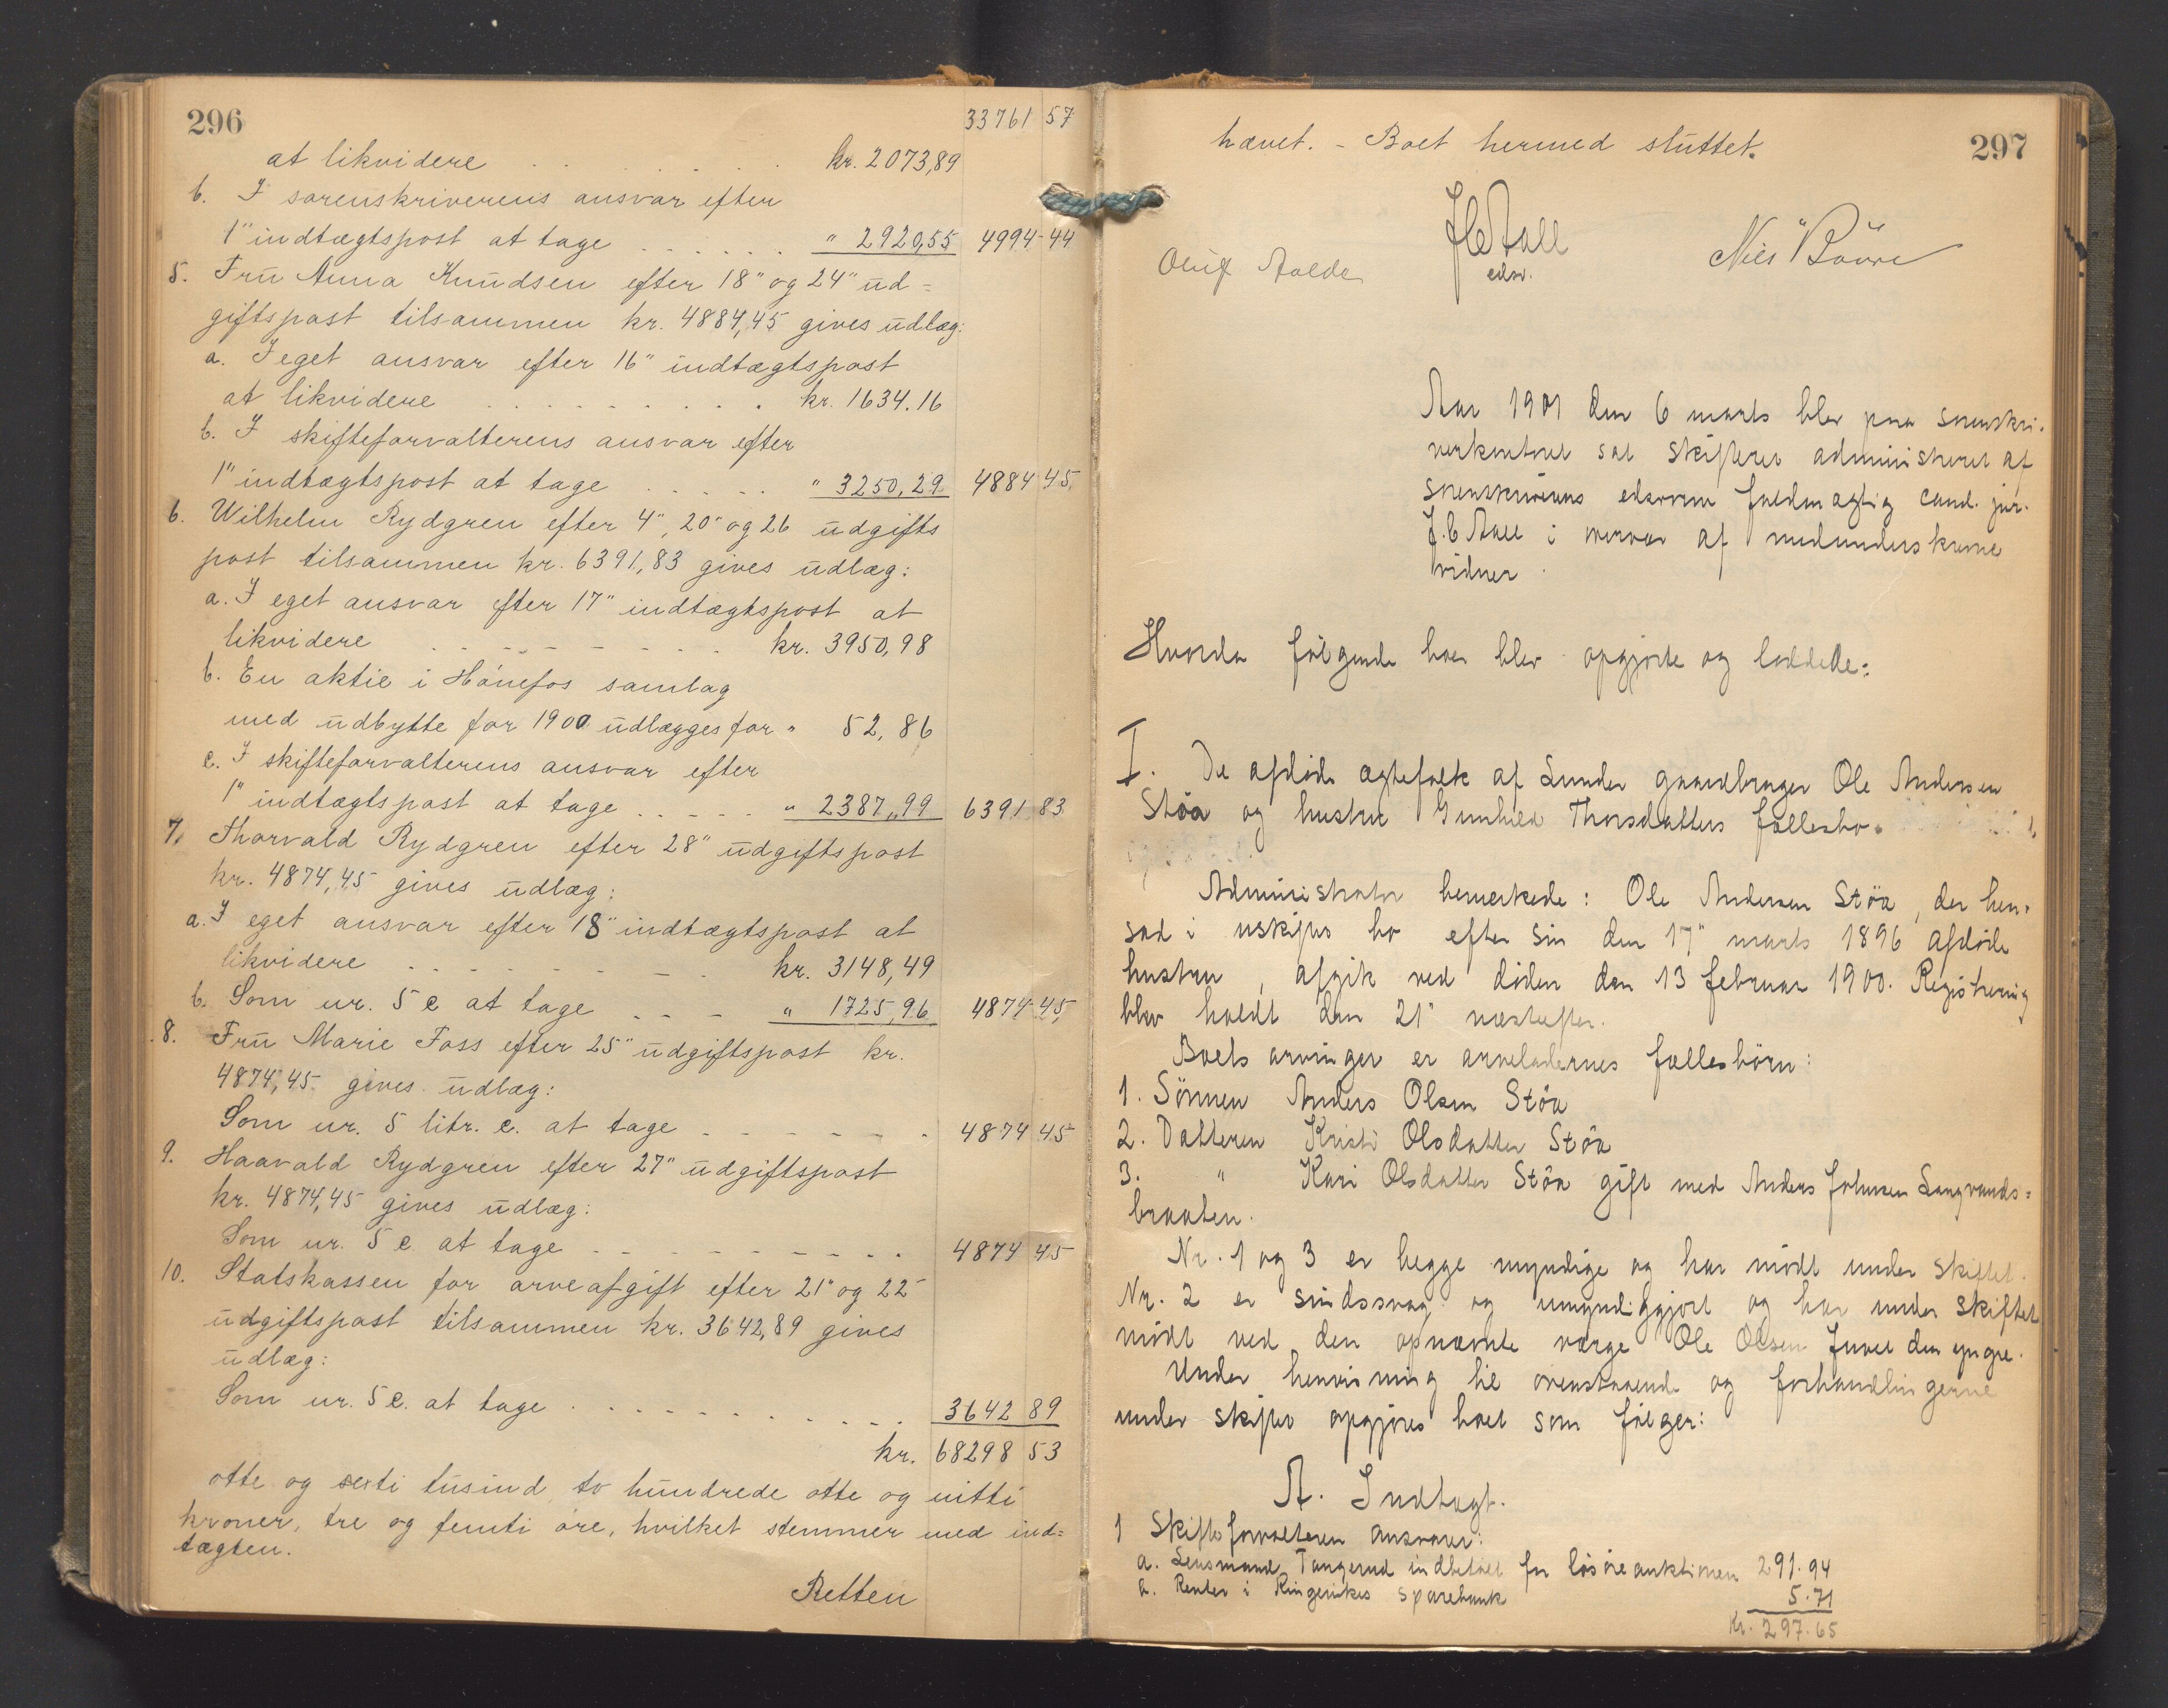 296
33761 57
at likvidere . . . . . . kr. 2073,89
b. I sorenskriverens ansvar efter
1" indtægtspost at tage . . . . . " 2920,55 4994 44
5. Fru Anna Knudsen efter 18" og 24" ud=
giftspost tilsammen kr. 4884,45 gives udlæg:
a. I eget ansvar efter 16" indtægtspost
at likvidere . . . . . . . . . kr. 1634.16
b. I skifteforvalterens ansvar efter
1" indtægtspost at tage . . . . . " 3250,29 4884 45
6. Wilhelm Rydgren efter 4", 20" og 26 udgifts
post tilsammen kr. 6391,83 gives udlæg:
a. I eget ansvar efter 17" indtægtspost at
likvidere . . - - - - - . . kr. 3950,98
b. En aktie i Hönefos samlag
med udbytte for 1900 udlægges for " 52,86
c. I skifteforvalterens ansvar efter
1" indtægtspost at tage . . - - . " 2387,99 6391 83
7, Thorvald Rydgren efter 28" udgiftspost
kr. 4874,45 gives udlæg:
a. I eget ansvar efter 18" indtægtspost at
likvidere . . - - - - - . kr. 3148,49
b. Som nr. 5 c at tage - - - " 1725,96 4874 45,
8. Fru Marie Foss efter 25" udgiftspost kr.
4874,45 gives udlæg:
Som nr. 5 litr. c. at tage - - - - - - . 4874 45
9. Haavald Rydgren efter 27" udgiftspost
kr. 4874,45 gives udlæg:
Som nr. 5 c at tage - - - - - - - . . 4874 45
10. Statskassen for arveafgift efter 21" og 22"
udgiftspost tilsammen kr. 3642,89 gives
udlæg:
Som nr. 5 c. at tage . . - - - - - . . . 3642 89
kr. 68298 53
otte og sexti tusind, to hundrede otte og nitti
kroner, tre og femti öre, hvilket stemmer med ind=
tægten.
Retten
297
hævet. - Boet hermed sluttet.
J C Aall
edsv.
Nils Bööre
Oluf
Aar 1901 den 6 marts blev paa sorenskri-
verkontoret sat skifteret administreret af
sorenskriverens edsvorne fuldmægtig cand. jur.
J. C Aall i overvær af medunderskrevne
vidner.
Hvorda følgende boer blev opgjorte og loddede:
I. De afdøde ægtefolk af Lunder gaardbruger Ole Andersen
Støa og hustru Gunhild Thorsdatters fællesbo.
Administrator bemerkede: Ole Andersen Støa, der hen-
sad i uskiftet bo efter sin den 17" marts 1896 afdøde
hustru, afgik ved døden den 13 februar 1900. Registrering
blev holdt den 21" næstefter.
Boets arvinger er arveladernes fællesbörn:
1. Sönnen Anders Olsen Støa
2. Datteren Kristi Olsdatter Støa
3. " Kari Olsdatter Støa gift med Anders Johnsen Langvands=
braaten.
Nr. 1 og 3 er begge myndige og har mödt under skiftet.
Nr. 2 er sindssvag og umyndiggjort og har under skiftet
mödt ved den opnævnte værge Ole Olsen Juvet den yngre.
Under henvisning til ovenstaaende og forhandlingerne
under skiftet opgjöres boet som fölger:
A. Indtægt.
1 Skifteforvalteren ansvarer:
a. Lensmand Tangerud indbetalt for lösöreauktionen 291.94
b. Renter i Ringerikes sparebank 5.71
Kr. 297.65